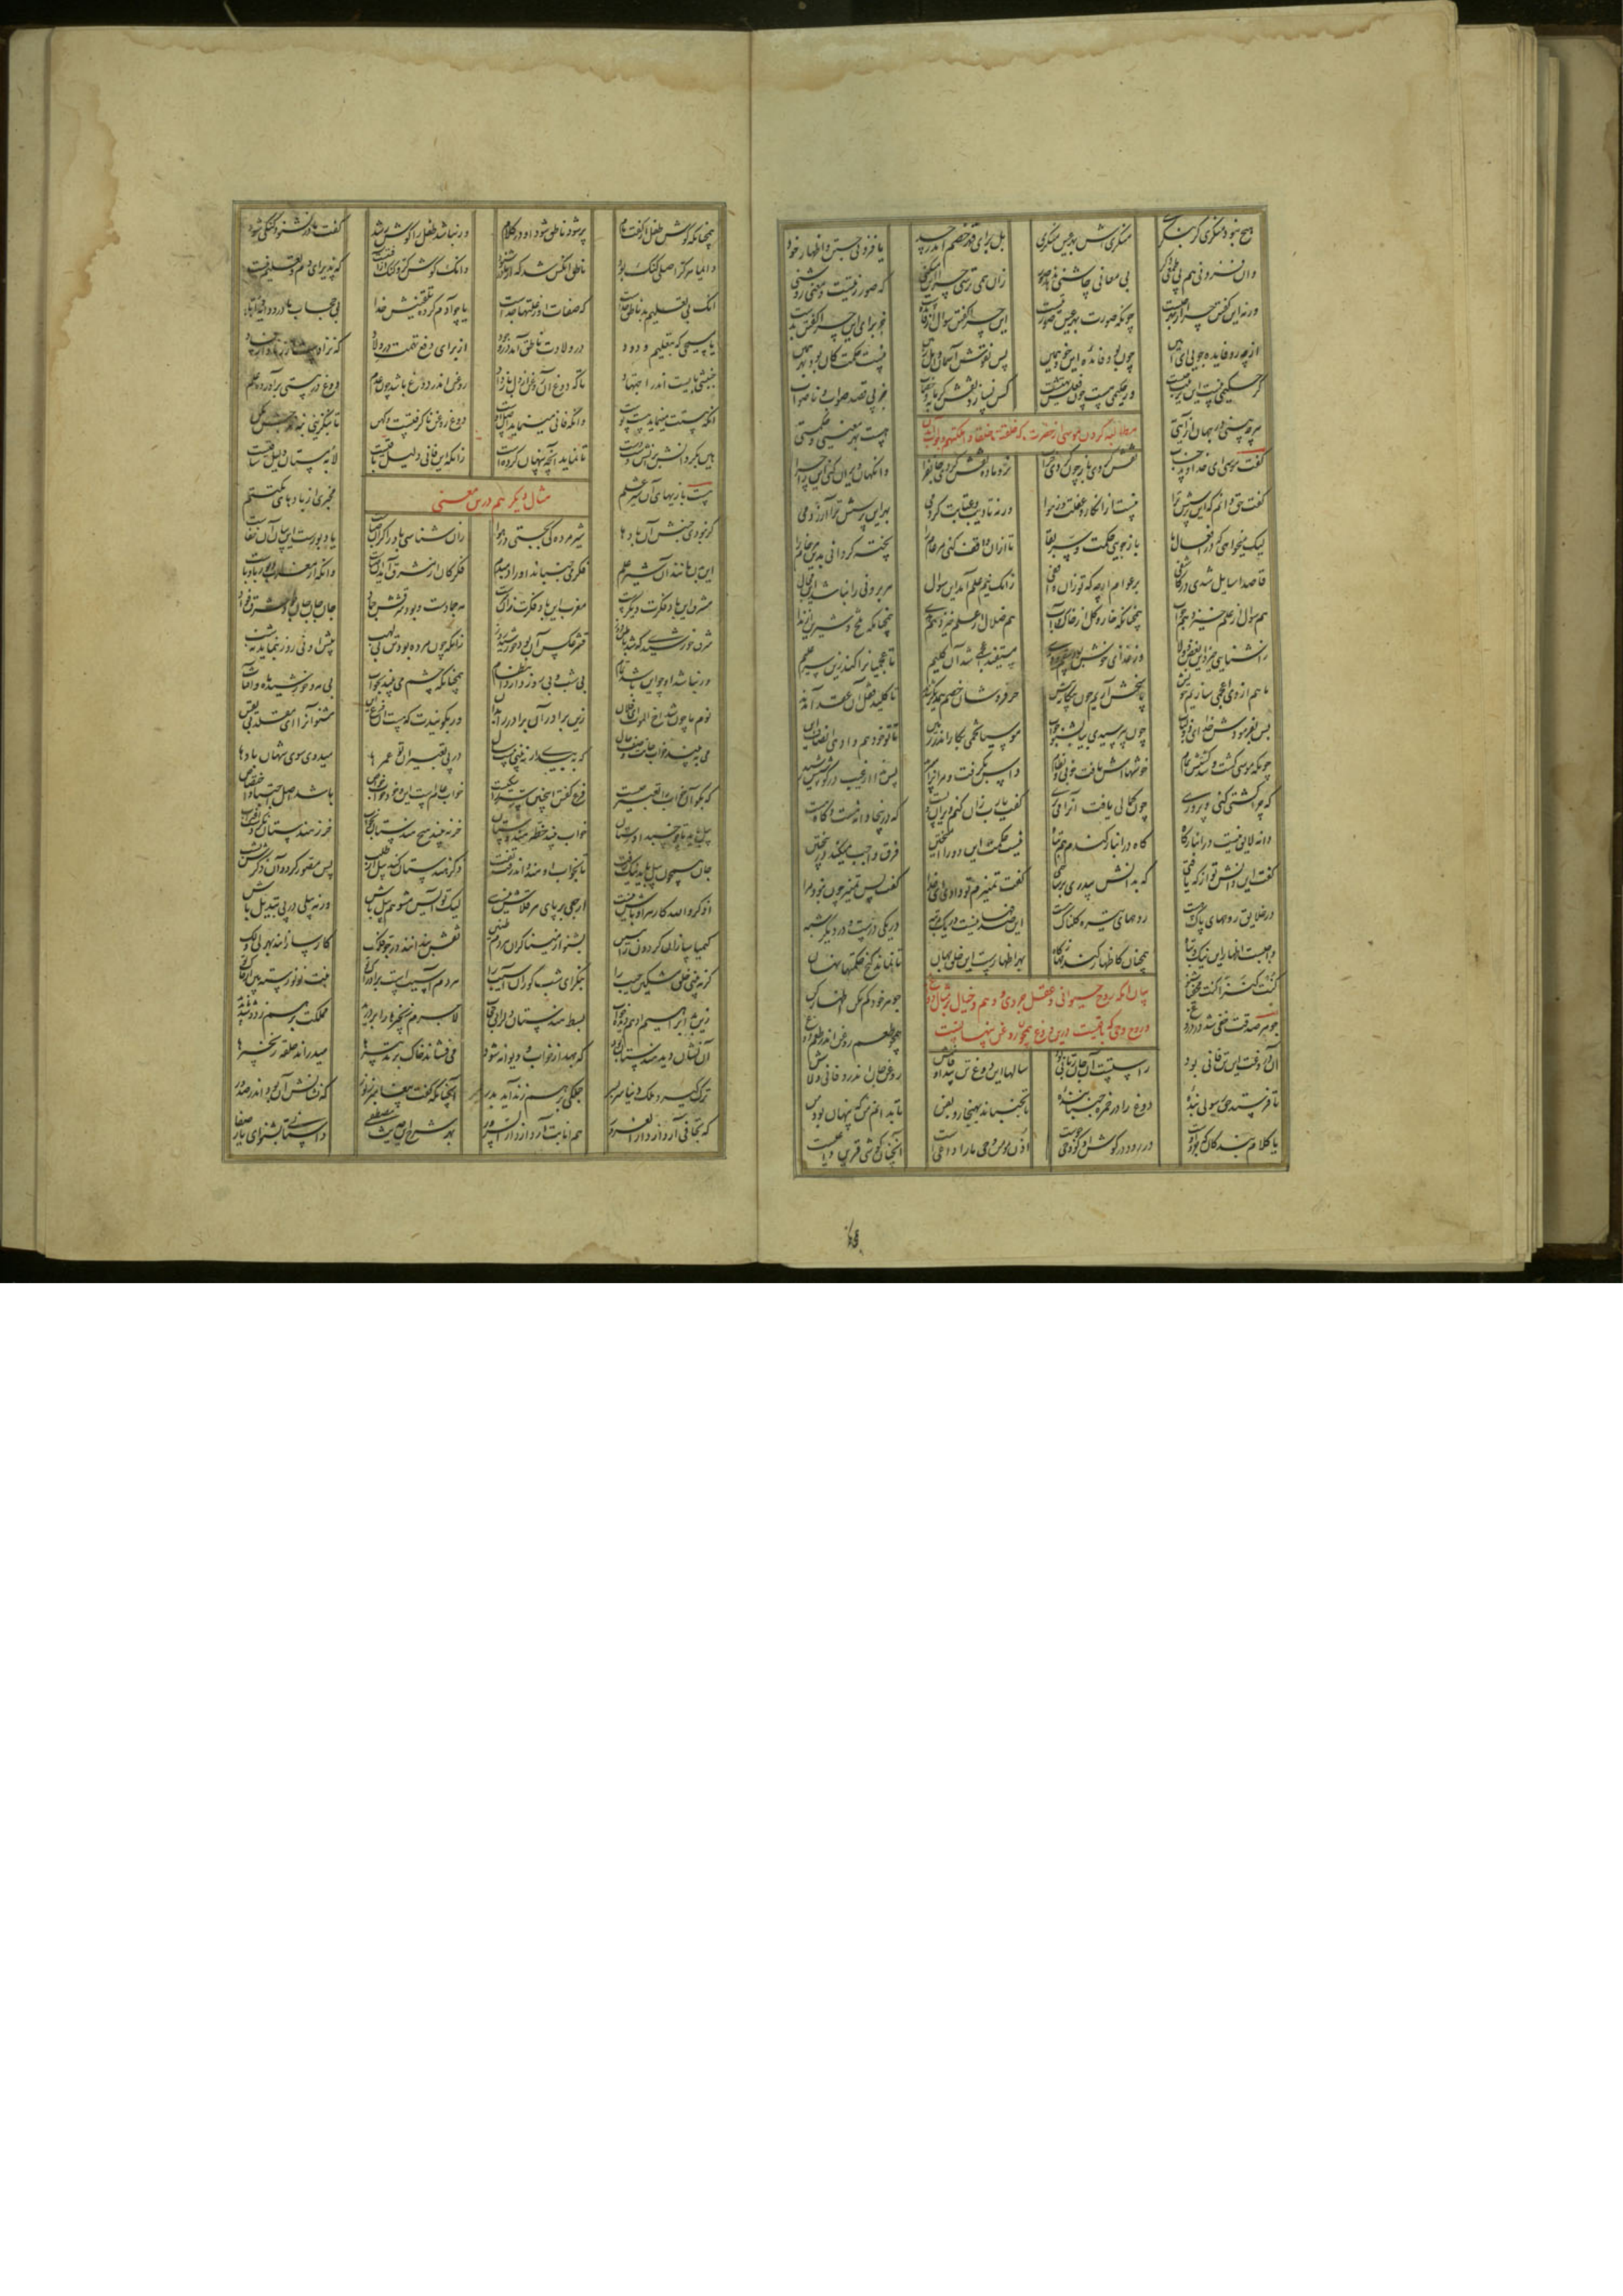 هیچ نبود منکری گر بنگری منکری اش بهر عین منکری بل برای قهر خصم اندر حسد یا فزونی جستن و اظهار خود
وان فزونی هم پی طمع دگر بی معانی چاشنی ندهد صور زان همی پرسی چرا این میکنی که صور زیتست و معنی روشنی
ورنه این گفتن چرا از بهر چیست چونکه صورت بهر عین صورتیست این چرا گفتن سوال از فایده‌ست جز برای این چرا گفتن بدست
از چه رو فایده جویی ای امین چون بود فایده این خود همین پس نقوش آسمان و اهل زمین نیست حکمت کان بود بهر همین
گر حکیمی نیست این ترتیب چیست ور حکیمی هست چون فعلش تهیست کس نسازد نقش گرمابه و خضاب جز پی قصد صواب و ناصواب
هرچه بینی در جهان از آیتی هست بهر معنیی و حکمتی
گفت موسی ای خداوند حساب نقش کردی باز چون کردی خراب نر و ماده نقش کردی جان فزا وانگهان ویران کنی این را چرا
گفت حق دانم که این پرسش ترا نیست از انکار و غفلت وز هوا ورنه تادیب و عتابت کردمی بهر این پرسش ترا آزردمی
لیک میخواهی که در افعال ما باز جویی حکمت و سر بقا تا از آن واقف کنی مر عام را پخته گردانی بدین هر خام را
قاصدا سایل شدی در کاشفی بر عوام ارچه که تو زان واقفی زانک نیم علم آمد این سوال هر برونی را نباشد این مجال
هم سوال از علم خیزد هم جواب همچنانکه خار و گل از خاک و آب هم ضلال از علم خیزد هم هدی همچنانکه تلخ و شیرین از ندا
ز آشنایی خیزد این بغض و ولا وز غذای خوش بود سقم و قوی مستفید اعجمی شد آن کلیم تا عجمیان را کند زین سر علیم
ما هم از وی اعجمی سازیم خویش پاسخش آریم چون بیگانه پیش خرفروشان خصم یکدیگر شدند تا کلید قفل آن عقد آمدند
پس بفرمودش خدا ای ذولباب چون بپرسیدی بیا بشنو جواب موسیا تخمی بکار اندر زمین تا تو خود هم وادهی انصاف این
چونکه موسی کشت و شد کشتش تمام خوشهااش یافت خوبی و نظام داس بگرفت و مر آنرا می برید پس ندا از غیب در گوشش رسید
که چرا کشتی کنی و پروری چون کمالی یافت آنرا می بری گفت یارب زان کنم ویران و پست که درینجا دانه هست و کاه هست
دانه لایق نیست در انبار کاه کاه در انبار گندم هم تباه نیست حکمت این دو را آمیختن فرق واجب میکند در بیختن
گفت این دانش تو از که یافتی که بدانش بیدری برساختی گفت تمییزم تو دادی ای خدا گفت پس تمییز چون نبود مرا
در خلایق روحهای پاک هست روحهای تیره گلناک هست این صدفها نیست در یک مرتبه در یکی درست و در دیگر شبه
واجبست اظهار این نیک و تباه همچنان کاظهار گندمها ز کاه بهر اظهارست این خلق جهان تا نماند گنج حکمتها نهان
کنت کنزا گفت مخفیا شنو جوهر خود گم مکن اظهار شو
بیان آنکه روح حیوانی و عقل جزوی و وهم و خیال بر مثال دوغ
و روح وحی که باقیست درین دوغ همچون روغن پنهانست
جوهر صدقت خفی شد در دروغ همچو طعم روغن اندر طعم دوغ
آن دروغت این تن فانی بود راستیت آن جان ربانی بود سالها این دوغ تن پیدا و فاش روغن جان اندرو فانی و لاش
تا فرستد حق رسولی بنده دوغ را در خمره جنباننده تا بجنباند بهنجار و بفن تا بدانم من که پنهان بود من
یا کلام بنده کان جزو اوست در رود در گوش او کو وحی جوست اذن مومن وحی ما را داعیست آنچنان گوشی قرین داعیست
همچنانکه گوش طفل از گفت مام پر شود ناطق شود او در کلام ور نباشد طفل را گوش رشد گفت مادر نشنود گنگی شود
دایما هر کر اصلی گنگ بود ناطق آنکس شد که از مادر شنود وانک گوش کر و گنگ از آفتیست که پذیرای دم و تعلیم نیست
آنک بی تعلیم بد ناطق خداست که صفات او ز علتها جداست یا چو آدم کرده تلقینش خدا بی حجاب مادر و دایه و ازا
یا مسیحی که بتعلیم ودود در ولادت ناطق آمد در وجود از برای دفع تهمت در ولاد که نزادست از زنا و از فساد
جنبشی بایست اندر اجتهاد تا که دوغ آن روغن از دل باز داد روغن اندر دوغ باشد چون عدم دوغ در هستی برآورده علم
آنکه هستت مینماید هست پوست وانکه فانی مینماید اصل اوست دوغ روغن ناگرفتست و کهن تا بنگزینی بنه خرجش مکن
هین بگردانش بدانش دست دست تا نماید آنچه پنهان کرده است زانکه این فانی دلیل باقیست لابه مستان دلیل ساقیست
مثال دیگر هم درین معنی
هست بازیهای آن شیر علم مخبری از بادهای مکتتم
گر نبودی جنبش آن بادها شیر مرده کی بجستی در هوا زان شناسی باد را گر آن صباست یا دبورست این بیان آن خفاست
این بدن مانند آن شیر علم فکر می جنباند او را دمبدم فکر کان از مشرق آید آن صباست وانکه از مغرب دبور با وباست
مشرق این باد فکرت دیگرست مغرب این باد فکرت زان سرست مه جمادست و بود شرقش جماد جان جان جان بود شرق فواد
شرق خورشیدی که شد باطن فروز قشر و عکس آن بود خورشید روز زانکه چون مرده بود تن بی لهب پیش او نی روز بنماید نه شب
ور نباشد او چو این باشد تمام بی شب و بی روز دارد انتظام همچنانکه چشم می بیند بخواب بی مه و خورشید ماه و آفتاب
نوم ما چون شد اخ الموت ای فلان زین برادر آن برادر را بدان ور بگویندت که هست آن فرع این مشنو آنرا ای مقلد بی یقین
می ببیند خواب جانت وصف حال که به بیداری نبینی بیست سال در پی تعبیر آن تو عمرها میدوی سوی شهان با دها
که بگو آن خواب را تعبیر چیست فرع گفتن اینچنین سر را سگیست خواب عامست این و خود خواب خواص باشد اصل اجتبا و اختصاص
پیل باید تا چو خسبد اوستان خواب بیند خطه هندوستان خر نبیند هیچ هندستان بخواب خر ز هندستان نکردست اغتراب
جان همچون پیل باید نیک زفت تا بخواب او هند داند رفت تفت ذکر هندستان کند پیل از طلب پس مصور گردد آن ذکرش بشب
اذکروا الله کار هر اوباش نیست ارجعی بر پای هر قلاش نیست لیک تو آیس مشو هم پیل باش ور نه پیلی در پی تبدیل باش
کیمیاسازان گردون را ببین بشنو از میناگران هر دم طنین نقش بندانند در جو فلک کارسازانند بهر لی و لک
گر نبینی خلق مشکین جیب را بنگر ای شب کور آن آسیب را هر دم آسیبست بر ادراک تو نبت نو نو رسته بین از خاک تو
زین بد ابراهیم ادهم دیده خواب بسط هندستان دل را بی حجاب لاجرم زنجیرها را بر درید مملکت بر هم زد و شد ناپدید
آن نشان دید هندستان بود که جهد از خواب و دیوانه شود می فشاند خاک بر تدبیرها میدراند حلقه زنجیرها
ترک گیرد ملک دنیا سربسر جملگی بر هم زند آید بدر آنچنانکه گفت پیغامبر ز نور که نشانش آن بود اندر صدور
که تجافی آرد از دار الغرور هم انابت آرد از دار السرور بهر شرح این حدیث مصطفی داستانی بشنو ای یار صفا